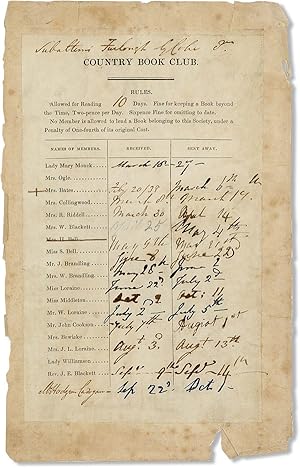 Subaltern's Furlough Globe &c
COUNTRY BOOK CLUB.
RULES.
Allowed for Reading 10 Days. Fine for keeping a Book beyond
the Time, Two-pence per Day. Sixpence Fine for omitting to date.
No Member is allowed to lend a Book belonging to this Society, under a
Penalty of One-fourth of its original Cost.
NAMES OF MEMBERS. RECEIVED. SENT AWAY.
Lady Mary Monck. March 15th 27
Mrs. Ogle.
Mrs. Bates. Feb 20/39 March 6th
Mrs. Collingwood. March 8th March 19
Mrs. R. Riddell. March 30 April 14
Mrs. W. Blackett. 25 May 4th
Mrs. H. Bell.
Miss S. Bell. May 9th
Mr. J. Brandling. June 8 June 22
Mrs. W. Brandling. May 28th June
Miss Loraine. June 22d July 2d
Miss Middleton. Oct 2 Oct 11
Mr. W. Loraine. July 2d July 5th
Mr. John Cookson. July 7th August 1st
Mrs. Bewicke.
Mrs. J. L. Loraine. Augt 3. Augt 13th
Lady Williamson.
Rev. J. E. Blackett. Sepr 9th Sepr 14th
Sep 22d Oct 1